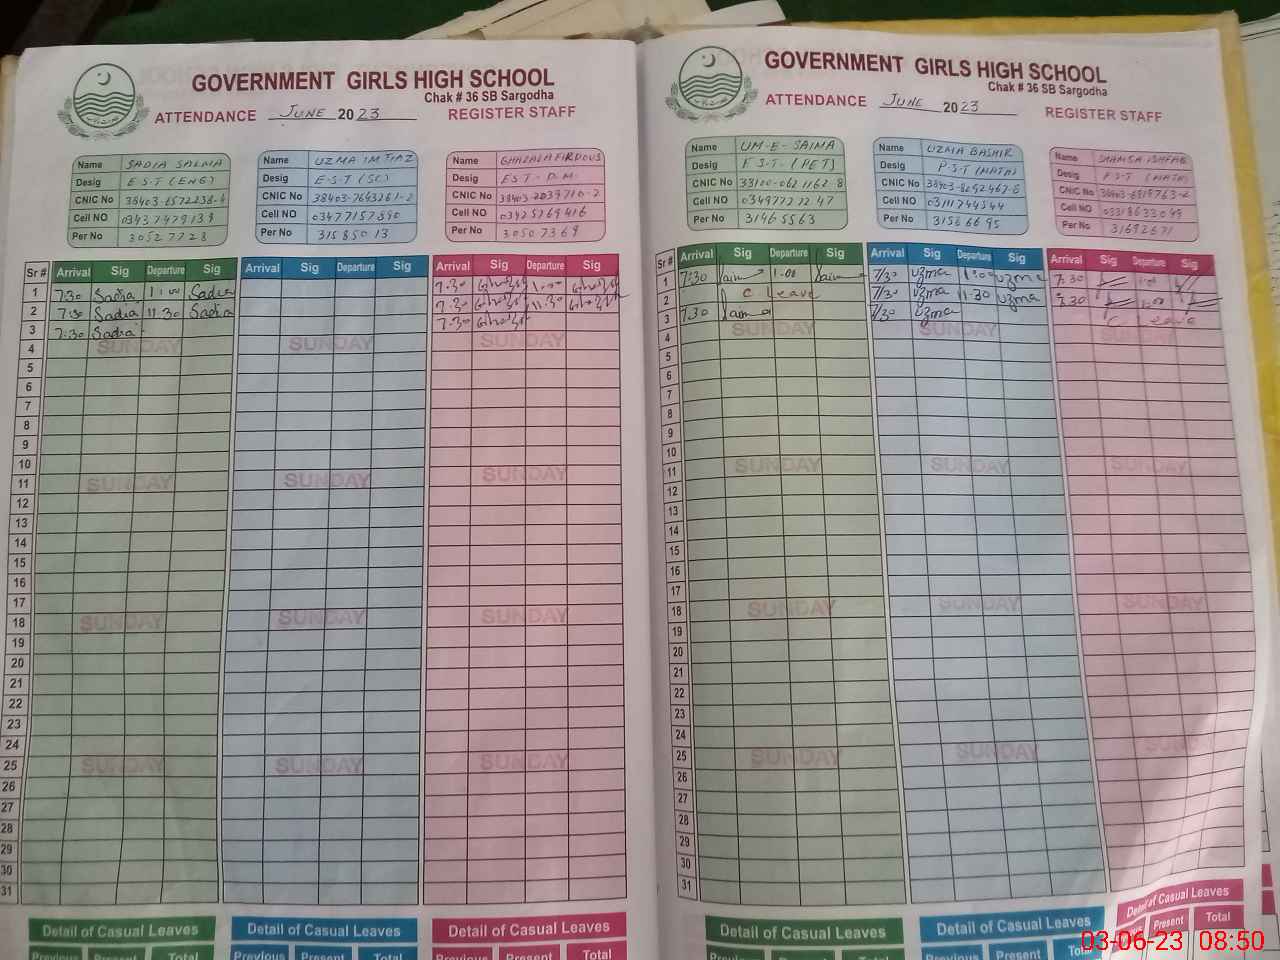 GOVERNMENT GIRLS HIGH SCHOOL
Chak # 36 SB Sargodha
ATTENDANCE JUNE 2023 REGISTER STAFF
Name SADIA SALMA
Desig E.S.T (ENG)
CNIC No 38403-6572238-4
Cell NO 03437479139
Per No 30527728
Name UZMA IMTIAZ
Desig E.S.T (SC)
CNIC No 38403-7643261-2
Cell NO 03477157590
Per No 31585013
Name GHAZALA FIRDOUS
Desig EST - D.M.
CNIC No 38403-2039710-2
Cell NO 03425769416
Per No 30507369
Sr # Arrival Sig Departure Sig Arrival Sig Departure Sig Arrival Sig Departure Sig
1 7:30 Sadia 1:00 Sadia 7:30 1:00
2 7:30 Sadia 11:30 Sadia 7:30 11:30
3 7:30 Sadia 7:30
4 SUNDAY SUNDAY SUNDAY
5
6
7
8
9
10
11 SUNDAY SUNDAY SUNDAY
12
13
14
15
16
17
18 SUNDAY SUNDAY SUNDAY
19
20
21
22
23
24
25 SUNDAY SUNDAY SUNDAY
26
27
28
29
30
31
Detail of Casual Leaves Detail of Casual Leaves Detail of Casual Leaves
Previous Present Total Previous Present Total Previous Present Total
GOVERNMENT GIRLS HIGH SCHOOL
Chak # 36 SB Sargodha
ATTENDANCE JUNE 2023 REGISTER STAFF
Name UM-E-SAIMA
Desig E.S.T. (PET)
CNIC No 33100-0621162-8
Cell NO 03497722247
Per No 31465563
Name UZMA BASHIR
Desig P.S.T (MATH)
CNIC No 38403-8092462-8
Cell NO 03111744544
Per No 31566695
Name SHAMSA ISHFAQ
Desig P.S.T (MATH)
CNIC No
Cell NO 03318633049
Per No 31692671
Sr # Arrival Sig Departure Sig Arrival Sig Departure Sig Arrival Sig Departure Sig
1 7:30 Saima 1:00 Saima 7/30 uzma 1:00 uzma 7:30 1:00
2 C Leave 7/30 uzma 11:30 uzma 7:30 1:00
3 7:30 Saima 7/30 uzma C Leave
4 SUNDAY SUNDAY SUNDAY
5
6
7
8
9
10
11 SUNDAY SUNDAY SUNDAY
12
13
14
15
16
17
18 SUNDAY SUNDAY SUNDAY
19
20
21
22
23
24
25 SUNDAY SUNDAY SUNDAY
26
27
28
29
30
31
Detail of Casual Leaves Detail of Casual Leaves Detail of Casual Leaves
Previous Present Total Previous Present Present Total
03-06-23 08:50